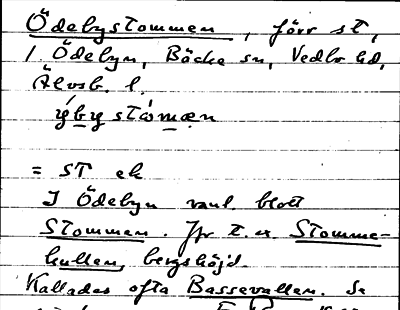 Ödebystommen, förr st,
i Ödebyn, Bäcke sn, Vedbo hd,
Älvsb. l.
= ST ek
I Ödebyn vanl. blott
Stommen. Jfr t. ex. Stomme-
kullen, bergshöjd.
Kallades ofta Bassevallen. Se